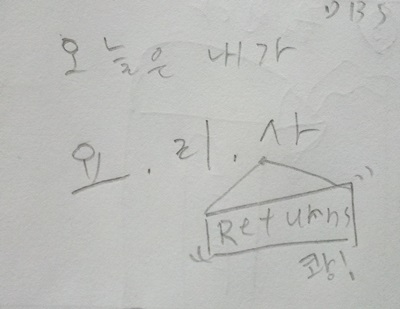 DBS
오늘은 내가
요.리.사
Returns
쾅!